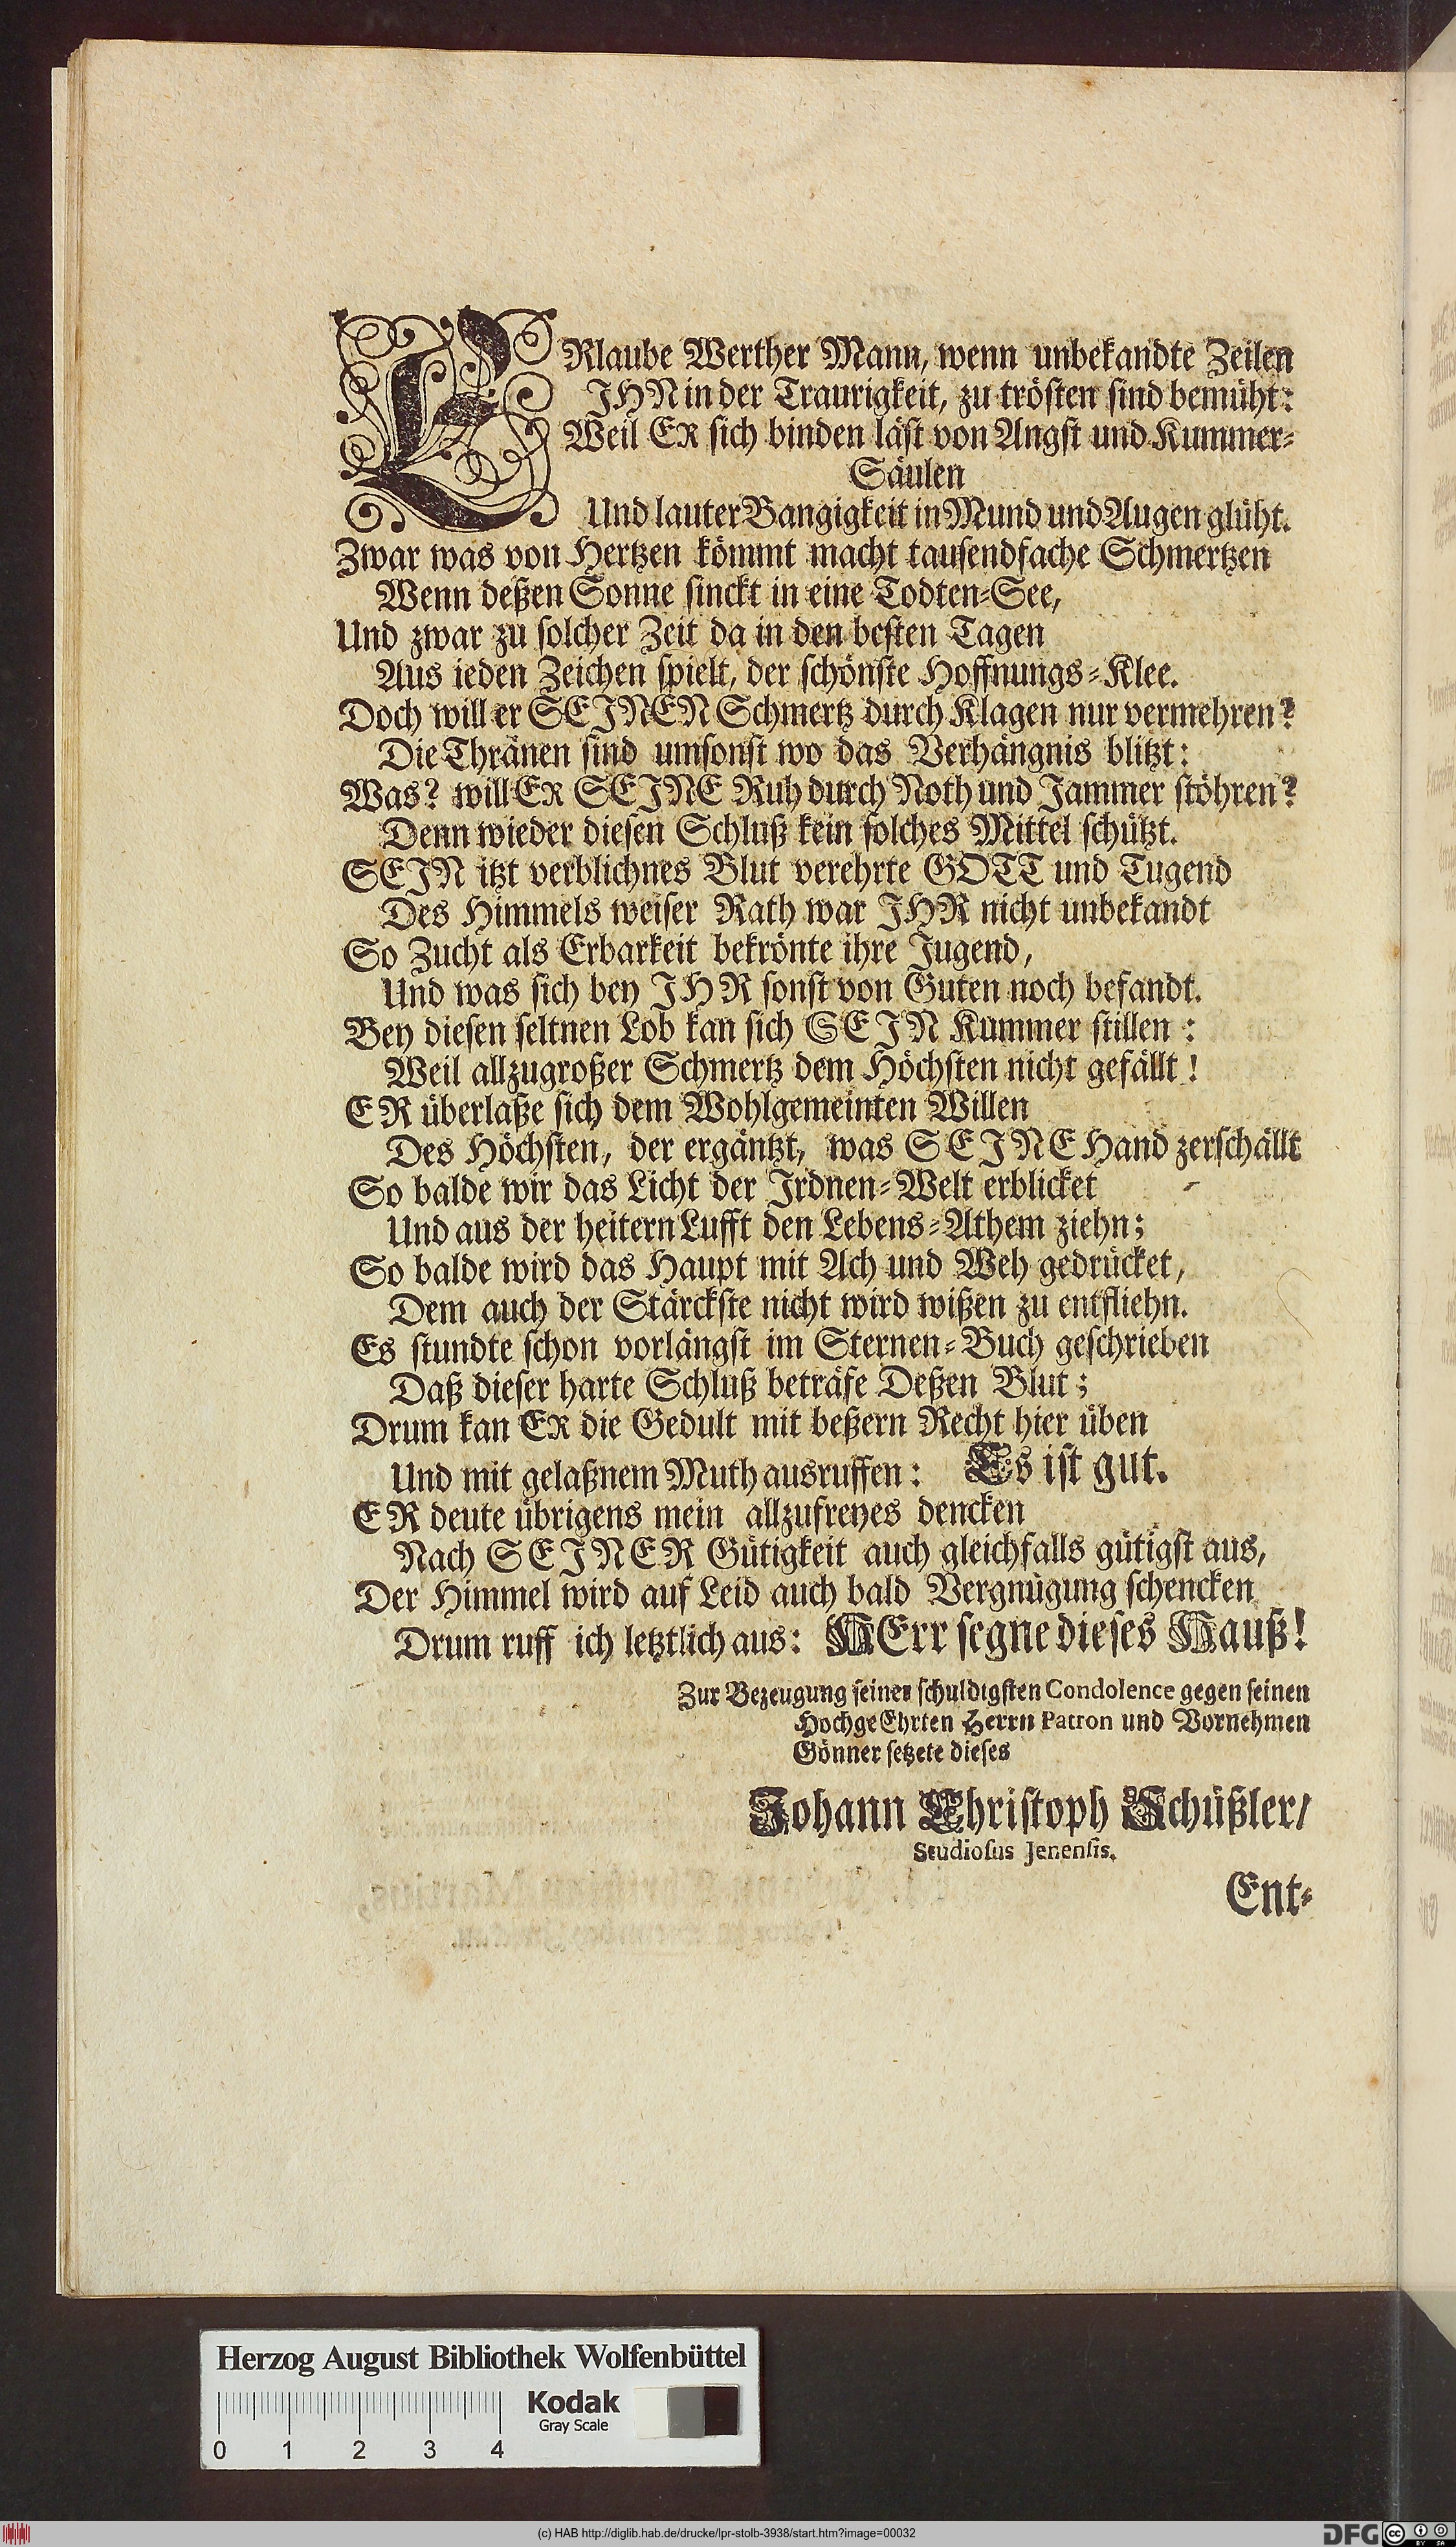 ERlaube Werther Mann, wenn unbekandte Zeilen
JHN in der Traurigkeit, zu trösten sind bemüht:
Weil ER sich binden läst von Angst und Kummer-
Säulen
Und lauter Bangigkeit in Mund und Augen glüht.
Zwar was von Hertzen kömmt macht tausendfache Schmertzen
Wenn deßen Sonne sinckt in eine Todten-See,
Und zwar zu solcher Zeit da in den besten Tagen
Aus ieden Zeichen spielt, der schönste Hoffnungs-Klee.
Doch will er SEJNEN Schmertz durch Klagen nur vermehren?
Die Thränen sind umsonst wo das Verhängnis blitzt:
Was? will ER SEJNE Ruh durch Noth und Jammer stöhren?
Denn wieder diesen Schluß kein solches Mittel schützt.
SEJN itzt verblichnes Blut verehrte GOTT und Tugend
Des Himmels weiser Rath war JHR nicht unbekandt
So Zucht als Erbarkeit bekrönte ihre Jugend,
Und was sich bey JHR sonst von Guten noch befandt.
Bey diesen seltnen Lob kan sich SEJN Kummer stillen:
Weil allzugroßer Schmertz dem Höchsten nicht gefällt!
ER überlaße sich dem Wohlgemeinten Willen
Des Höchsten, der ergäntzt, was SEJNE Hand zerschällt
So balde wir das Licht der Jrdnen-Welt erblicket
Und aus der heitern Lufft den Lebens-Athem ziehn;
So balde wird das Haupt mit Ach und Weh gedrücket,
Dem auch der Stärckste nicht wird wißen zu entfliehn.
Es stundte schon vorlängst im Sternen-Buch geschrieben
Daß dieser harte Schluß beträfe Deßen Blut;
Drum kan ER die Gedult mit beßern Recht hier üben
Und mit gelaßnem Muth ausruffen: Es ist gut.
ER deute übrigens mein allzufreyes dencken
Nach SEJNER Gütigkeit auch gleichfalls gütigst aus,
Der Himmel wird auf Leid auch bald Vergnügung schencken
Drum ruff ich letztlich aus: HErr segne dieses Hauß!
Zur Bezeugung seiner schuldigsten Condolence gegen seinen
HochgeEhrten Herrn Patron und Vornehmen
Gönner setzete dieses
Johann Christoph Schüßler/
Studiosus Jenensis.
Ent-
Herzog August Bibliothek Wolfenbüttel
Kodak
Gray Scale
0 1 2 3 4
(c) HAB http://diglib.hab.de/drucke/lpr-stolb-3938/start.htm?image=00032
DFG cc BY SA